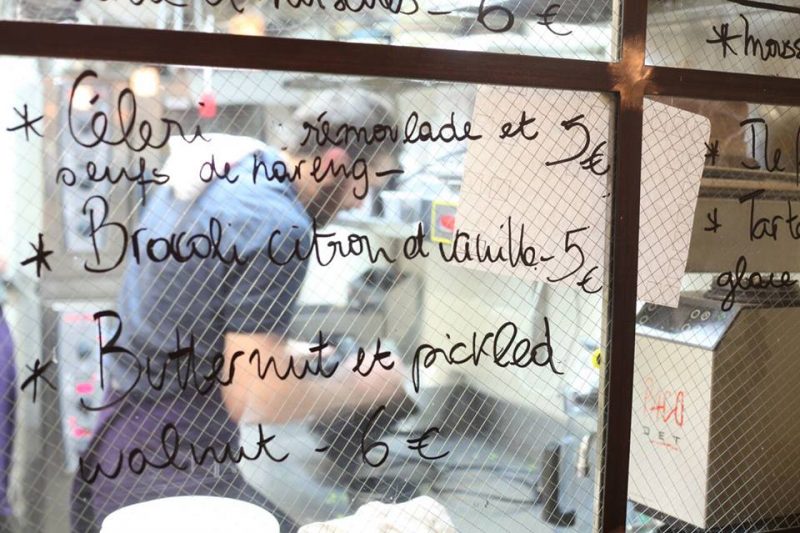 6 €
* Céleri rémoulade et 5€
oeufs de hareng -
* Brocoli citron et vanille - 5€
* Butternut et pickled
walnut - 6 €
*
* Ile
* Tart
glace